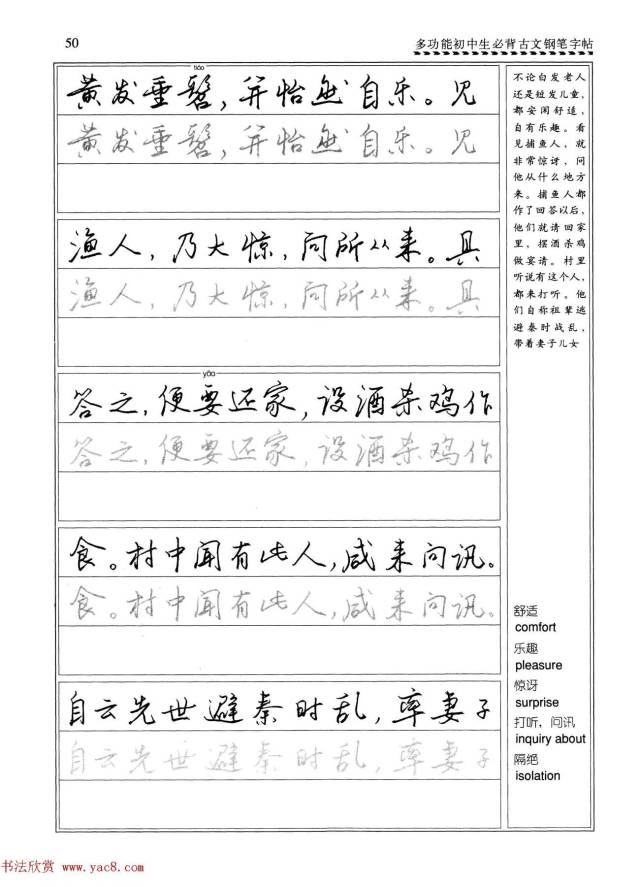 50
多功能初中生必背古文钢笔字帖
tiáo
黄发垂髫，并怡然自乐。见
黄发垂髫，并怡然自乐。见
渔人，乃大惊，问所从来。具
渔人，乃大惊，问所从来。具
yāo
答之，便要还家，设酒杀鸡作
答之，便要还家，设酒杀鸡作
食。村中闻有此人，咸来问讯。
食。村中闻有此人，咸来问讯。
自云先世避秦时乱，率妻子
自云先世避秦时乱，率妻子
不论白发老人
还是短发儿童，
都安闲舒适，
自有乐趣。看
见捕鱼人，就
非常惊讶，问
他从什么地方
来。捕鱼人都
作了回答以后，
他们就请回家
里，摆酒杀鸡
做宴请。村里
听说有这个人，
都来打听。他
们自称祖辈逃
避秦时战乱，
带着妻子儿女
舒适
comfort
乐趣
pleasure
惊讶
surprise
打听，问讯
inquiry about
隔绝
isolation
书法欣赏 www.yac8.com